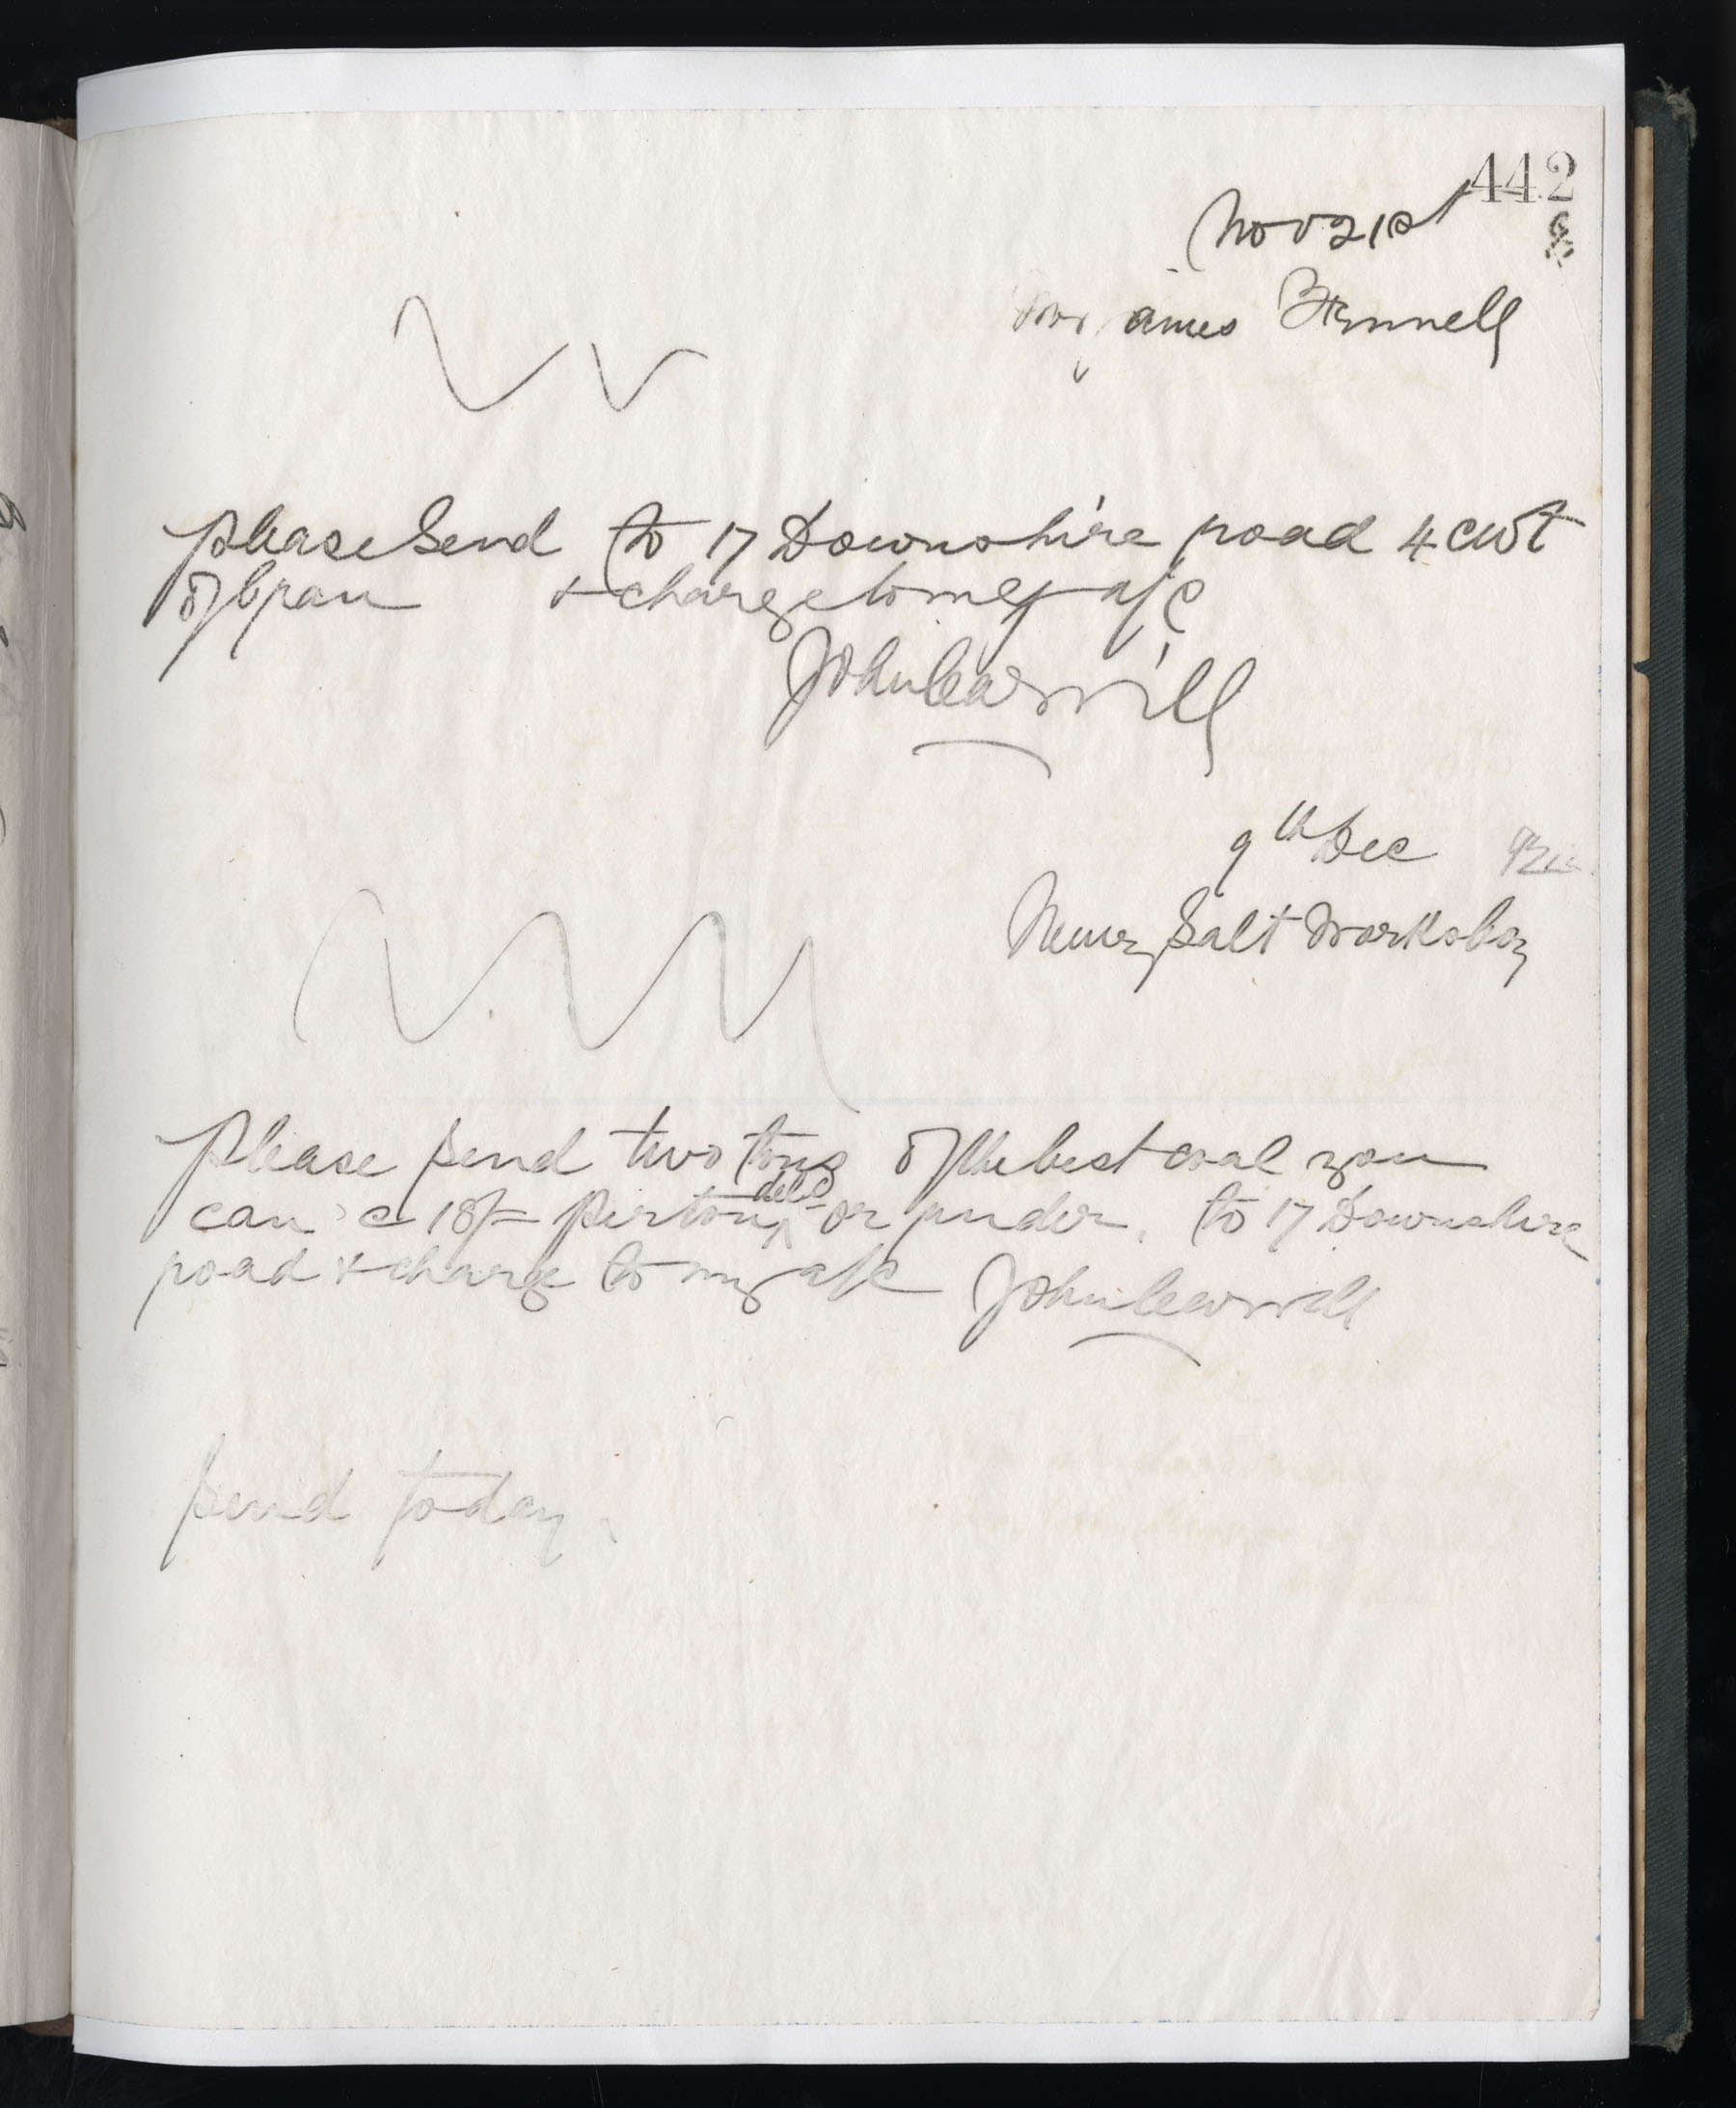 442
Nov 21st
James Fennell
please Send to 17 Downshire road 4 cwt
of bran & charge to my a/c
John Carvill
9th Dec
Newry Salt Works Coy
Please send two tons of the best coal you
can @ 18/= per ton, deld or under, to 17 Downshire
road & charge to my a/c John Carvill
send today